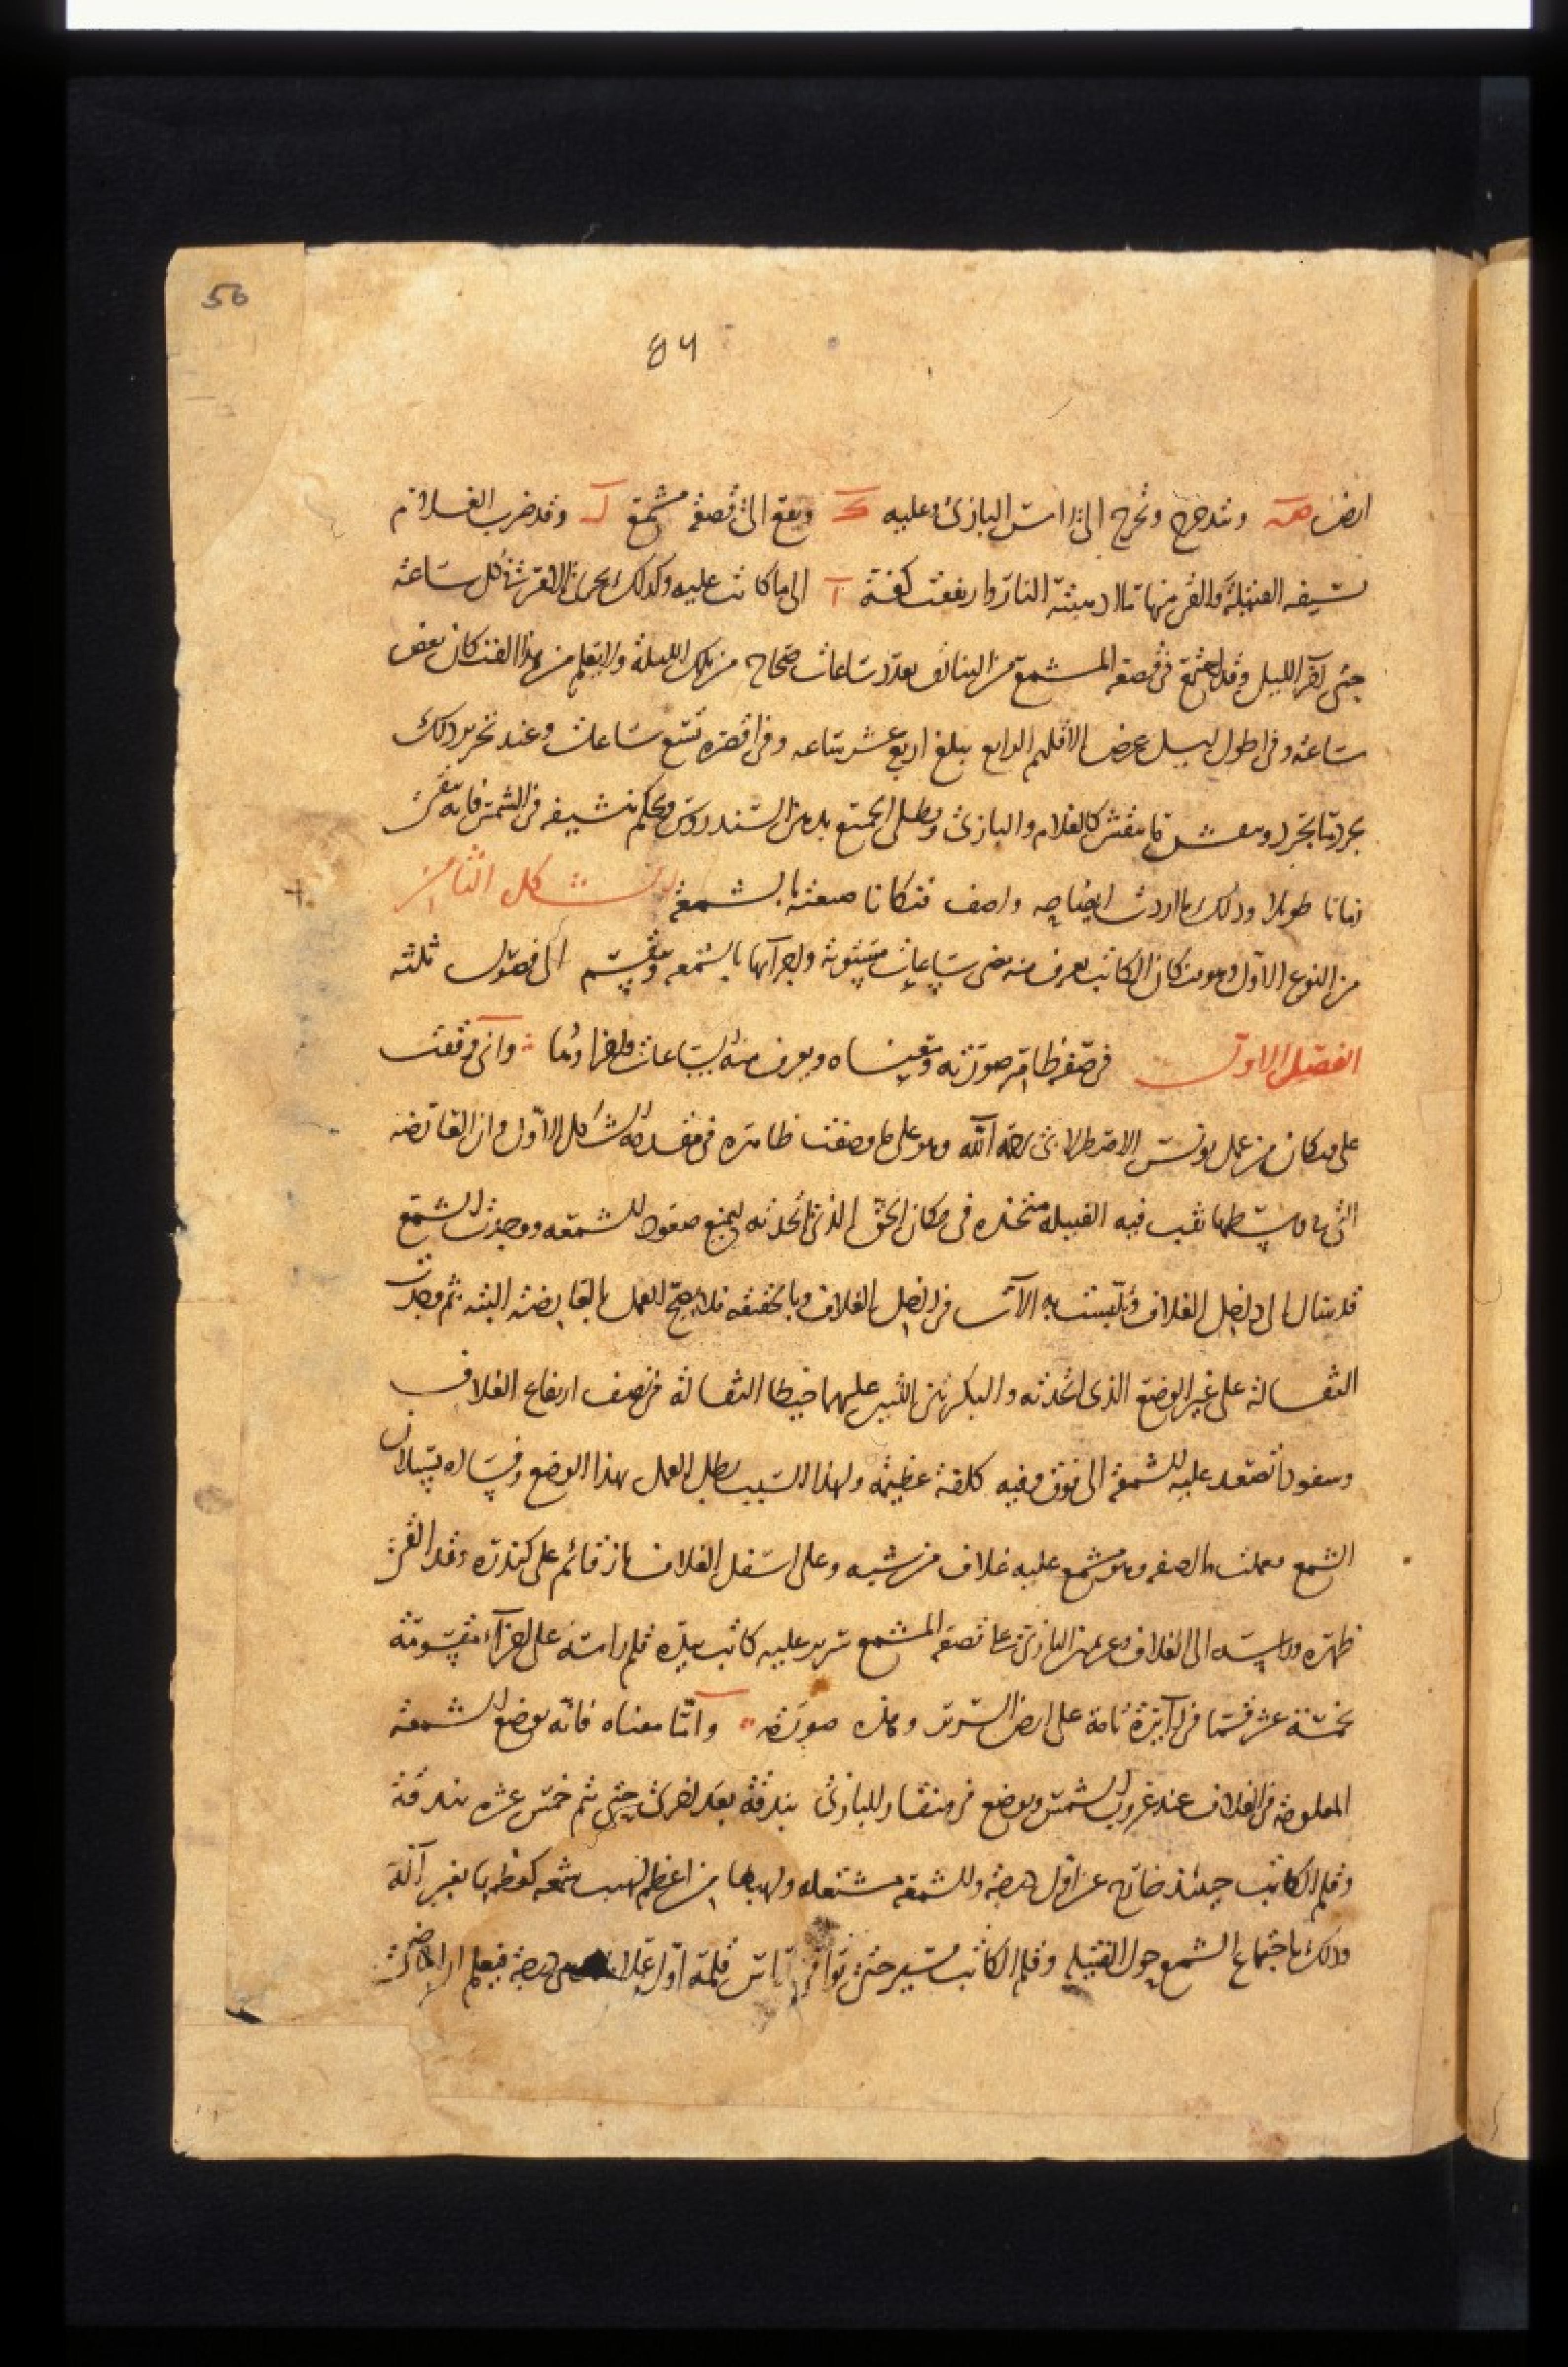 50
84
ارض صه وتتدحرج وتخرج الى راس البازى وعليه ك وتقع الى قصعة مشمع ل وقد ضرب الغلام
بسيفه الفتيلة والقى منها ما ارمدته النار وارتفعت كفة آ الى ما كانت عليه وكذلك يجرى الامر فى كل ساعة
حتى اخر الليل وقد اجتمع فى قصعة المشمع من البنادق بعدد ساعات صحاح من تلك الليلة ولا يعلم من هذا الفنكان بعض
ساعة وفى اطول ليل عرض الاقليم الرابع يبلغ اربع عشر ساعه وفى اقصره تسع ساعات وعند تحرير ذلك
يجرد ما يجرد وينقش ما ينقش كالغلام والبازى ويطلى الجميع بدهن السندروس ويحكم تنشيفه فى الشمس فانه يبقى
زمانا طويلا وذلك ما اردت ايضاحه واصف فنكانا صنعته بالشمعة الشكل الثامن
من النوع الاول وهو فنكان الكاتب يعرف منه مضى ساعات مستوية واجزائها بالشمعه وينقسم الى فصول ثلثه
الفصل الاول فى صفة ظاهر صورته ومعناه ويعرف منه الساعات واجزاؤها وانى وقفت
على فنكان من عمل يونس الاصطرلابى رحمه الله وهو على ما وصفت ظاهره فى مقدمة الشكل الاول وان القابضه
التى فى وسطها ثقب فيه الفتيله متخذه فى مكان الحق الذى اتخذته ليمنع صعود الشمعه ووجدت الشمع
قد سال الى داخل الغلاف وتلبست به الآلات فى داخل الغلاف وبالحقيقه فلا يصح العمل بالقابضة البتة ثم وجدت
الثقالة على غير الوضع الذى اتخذته والبكرتين اللتين عليهما خيطا الثقالة فى نصف ارتفاع الغلاف
وسفودا تصعد عليه الشمعة الى فوق وفيه كلفة عظيمة ولهذا السبب يبطل العمل بهذا الوضع وفساده بسيلان
الشمع فعملت ما اصفه وهو مشمع عليه غلاف من شبه وعلى اسفل الغلاف باز قائم على كندره وقد القى
ظهره وراسه الى الغلاف وعن يمين البازى على قصعة المشمع سرير عليه كاتب بيده قلم راسه على اجزاء مقسومة
بخمسة عشر قسما فى دايرة تامة على ارض السرير وهذه صورته واما معناه فانه يوضع الشمعة
المعلومة فى الغلاف عند غروب الشمس ويوضع فى منقار البازى بندقة بعد اخرى حتى تتم خمس عشره بندقة
وقلم الكاتب حينئذ خارج عن اول درجة والشمعة مشتعله ولهيبها من اعظم لهيب شمعه كعظمها بغير آلة
وذلك باجتماع الشمع حول الفتيله وقلم الكاتب يسير حتى توافى راس قلمه اول درجة فيعلم ان الماضى